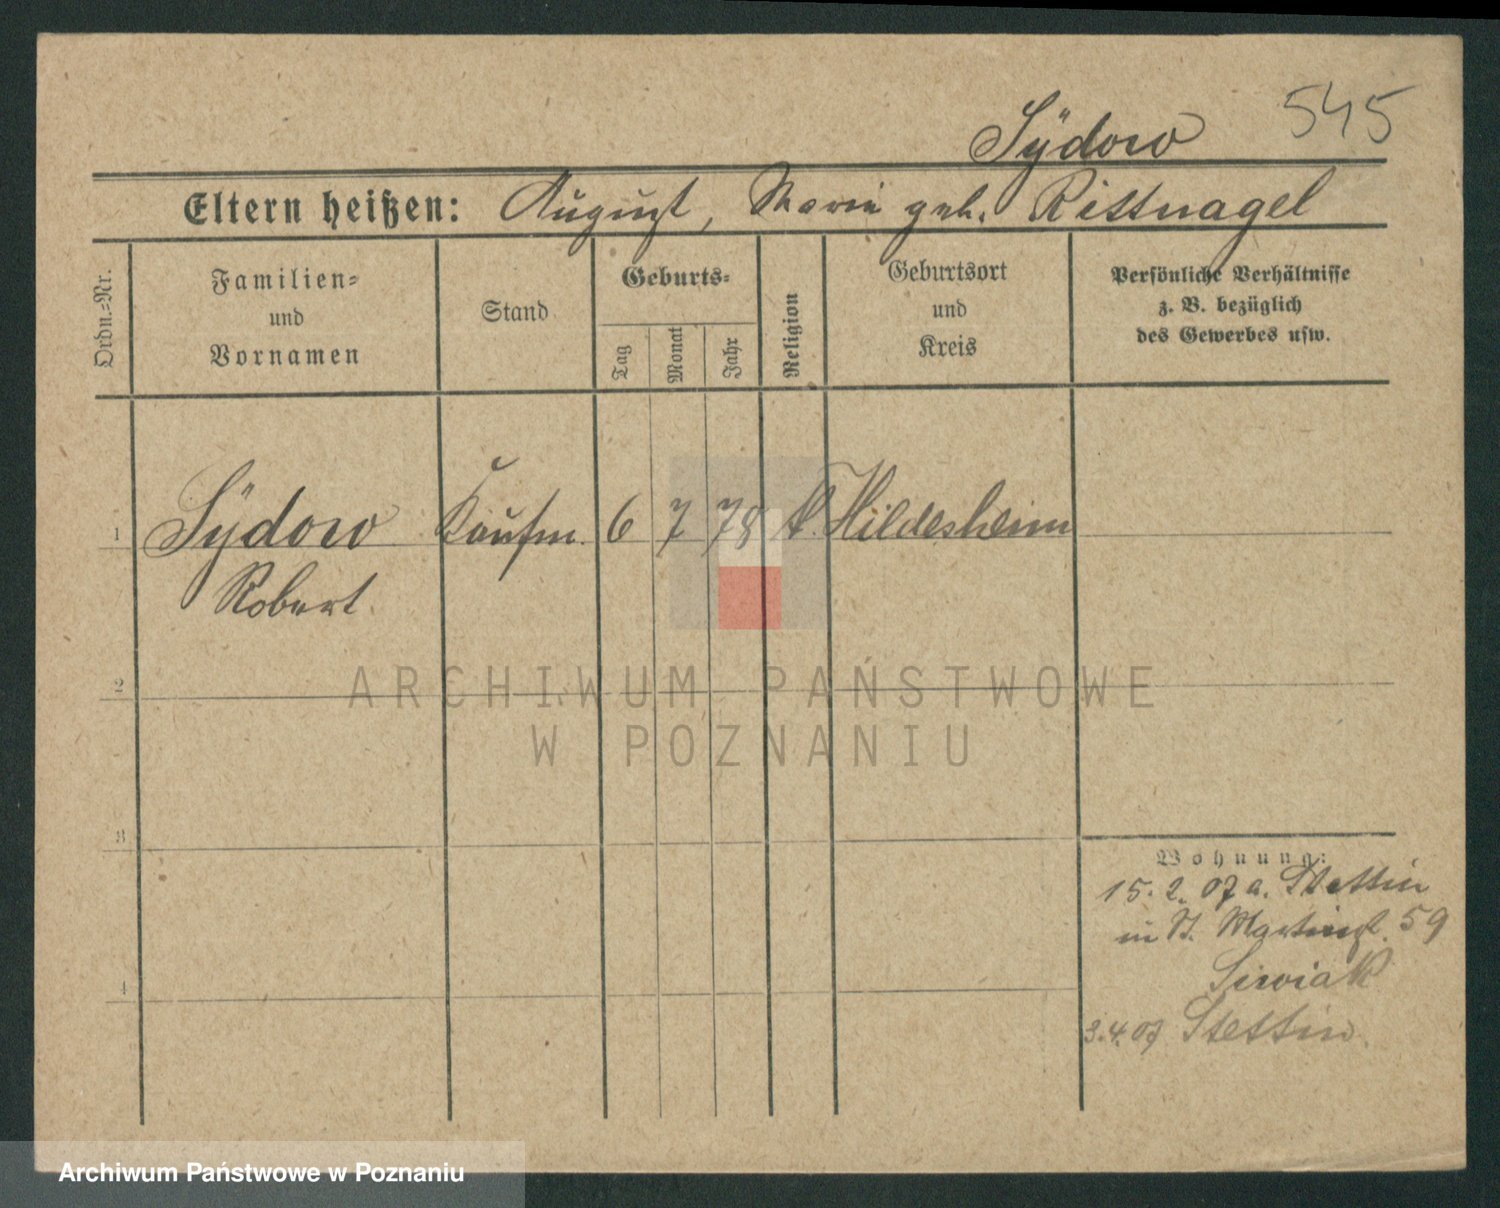 545
Sÿdow
Eltern heißen: August, Marie geb. Rittnagel
Ordn.=Nr.
Familien=
und
Vornamen
Stand
Geburts=
Tag
Monat
Jahr
Religion
Geburtsort
und
Kreis
Persönliche Verhältnisse
z. B. bezüglich
des Gewerbes usw.
1 Sÿdow Kaufm. 6 7 78 k. Hildesheim
Robert
2
3
4
Wohnung:
15. 2. 07 a. Stettin
in St. Martinst. 59
Siwiak
3.4.07 Stettin.
ARCHIWUM PAŃSTWOWE
W POZNANIU
Archiwum Państwowe w Poznaniu